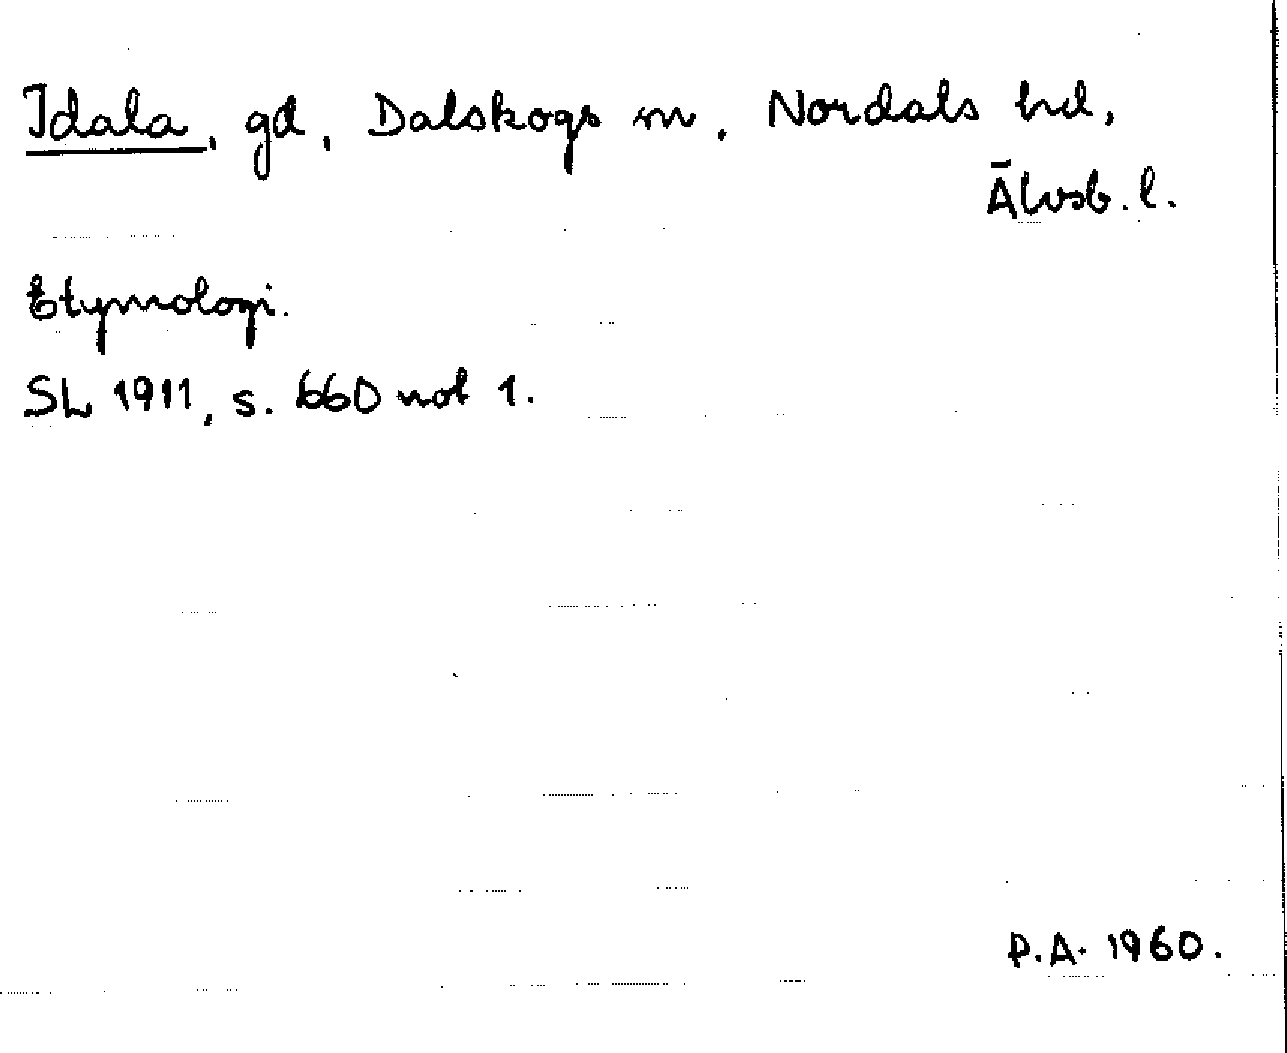 Idala, gd, Dalskogs sn, Nordals hd,
Älvsb. l.
Etymologi.
SL 1911, s. 660 not 1.
P.A. 1960.